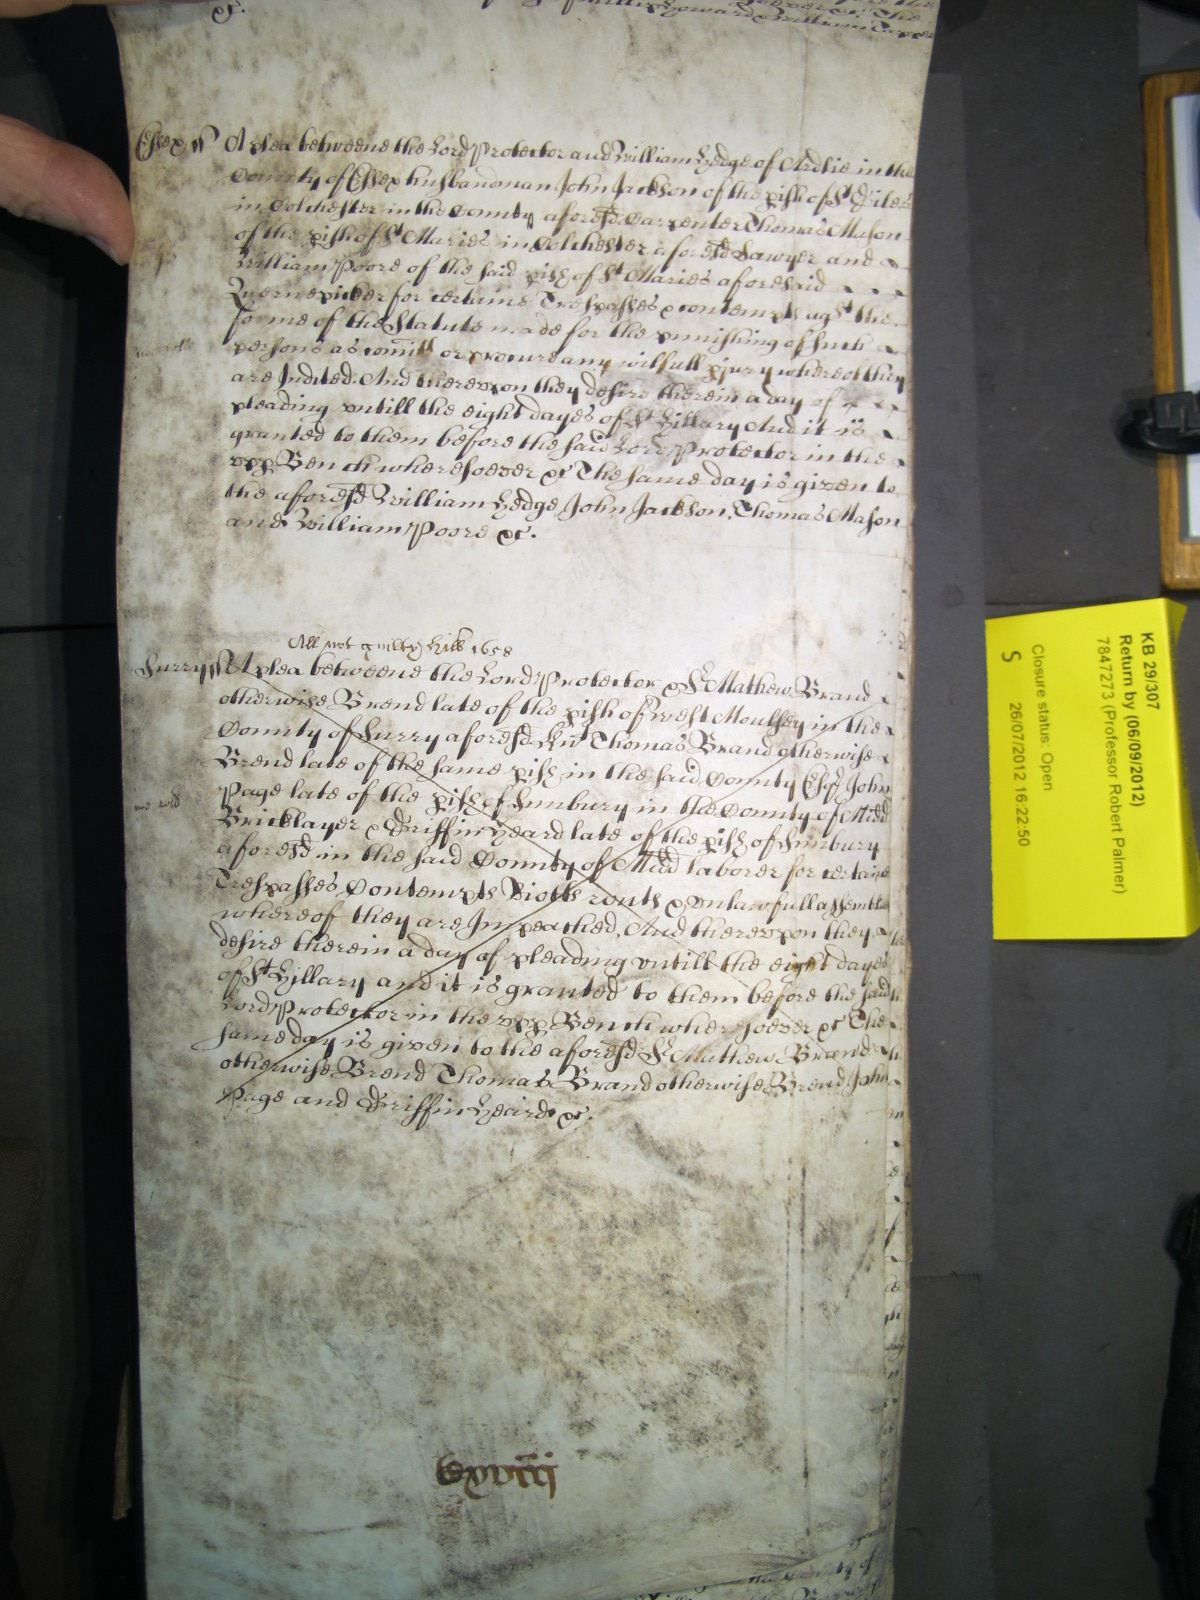 &c.
Essex ss A plea betweene the Lord Protector and William Hedge of Ardlie in the
County of Essex husbandman John Jackson of the pish of St Giles
in Colchester in the County aforesd Carpenter Thomas Mason
of the pish of St Maries in Colchester aforesd Sawyer and
William Poore of the said pish of St Maries aforesaid
for certaine Trespasses & contempts agst the
forme of the Statute made for the punishing of such
persons as comitt or procure any wilfull pjury whereof they
are Indited. And thereupon they desire therein a day of
pleading untill the eight dayes of St Hillary And it is
granted to them before the said Lord Protector in the
upp Bench wheresoever &c The same day is given to
the aforesd William Hedge John Jackson, Thomas Mason
and William Poore &c.
All not guilty Hill 1658
Surry ss A plea betweene the Lord Protector & Sr Mathew Brand
otherwise Brend late of the pish of West Moulsey in the
County of Surry aforesd Knt Thomas Brand otherwise
Brend late of the same pish in the said County Esqr John
Page late of the pish of Sunbury in the County of Midd
Bricklayer & Griffin Heard late of the pish of Sunbury
aforesd in the said County of Midd laborer for certaine
Trespasses Contempts Riotts routs & unlawfull assemblies
whereof they are Impeached, And thereupon they
desire therein a day of pleading untill the eight dayes
of St Hillary and it is granted to them before the said
Lord Protector in the upp Bench wheresoever &c The
same day is given to the aforesd Sr Mathew Brand
otherwise Brend Thomas Brand otherwise Brend John
Page and Griffin Heard &c.
KB 29/307
Return by (06/09/2012)
7847273 (Professor Robert Palmer)
Closure status: Open
S 26/07/2012 16:22:50